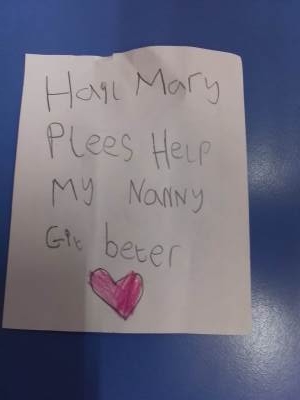 Hail Mary
Plees Help
My Nanny
Git beter